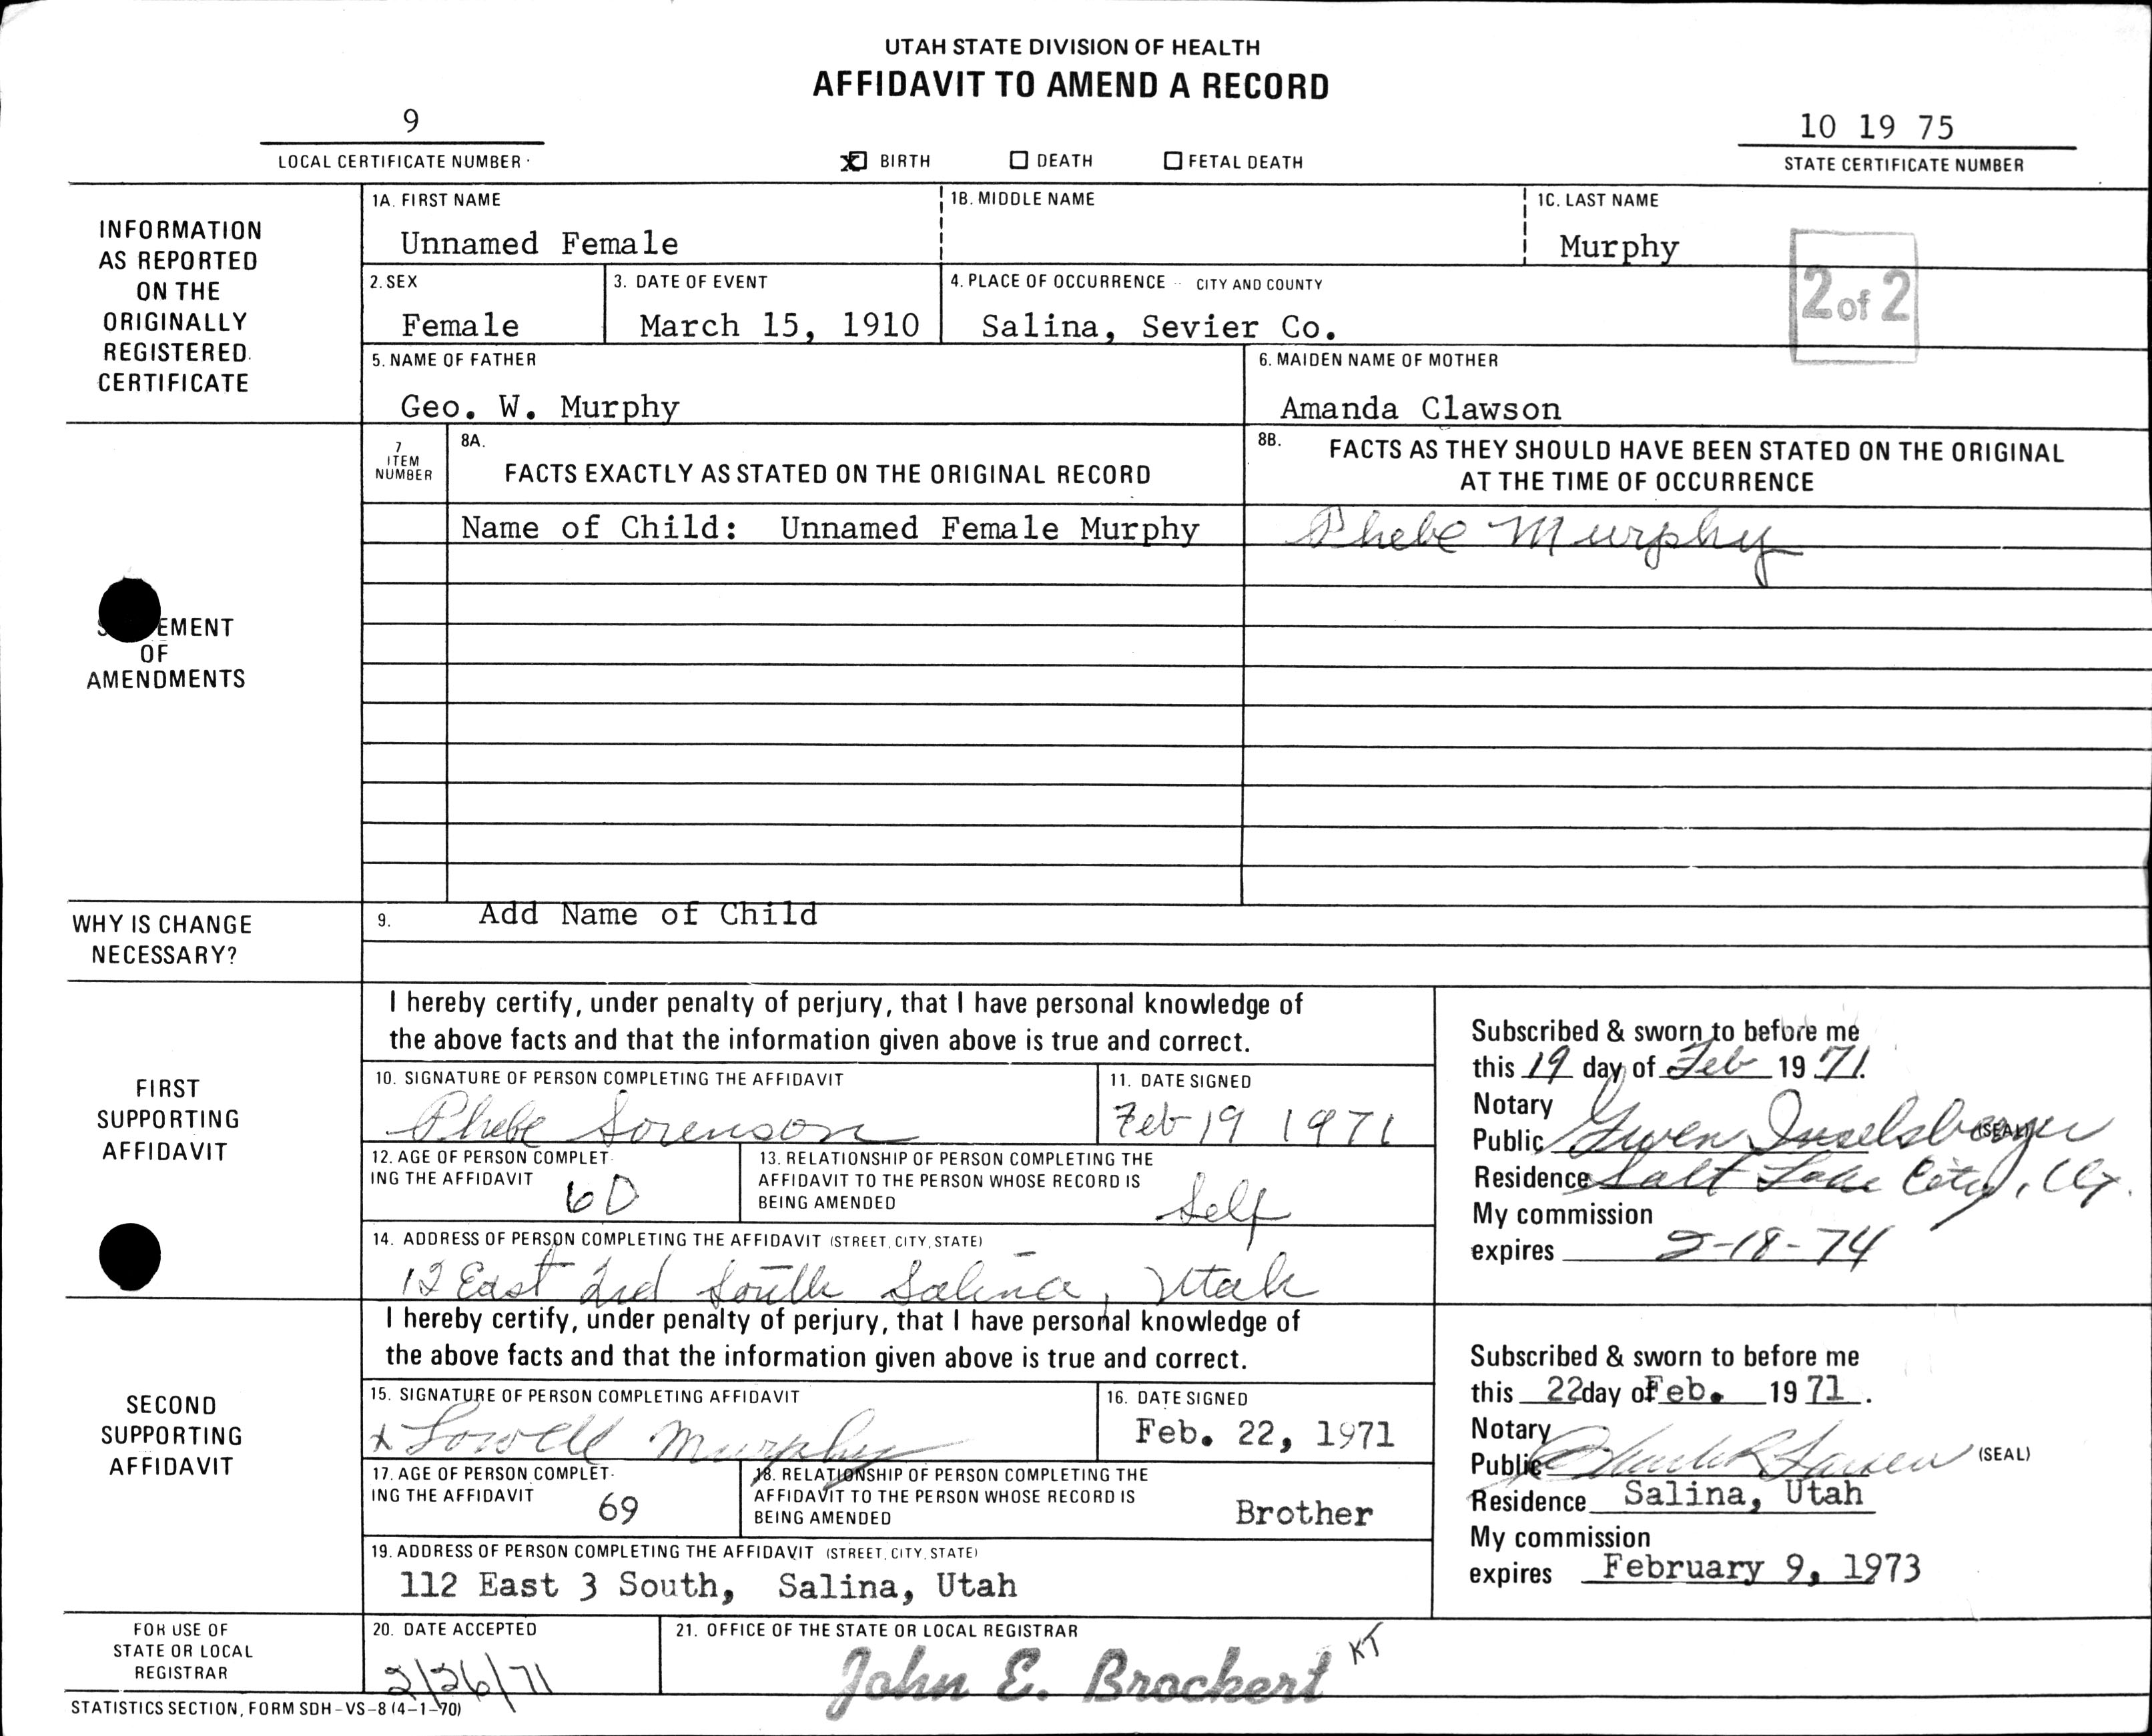 UTAH STATE DIVISION OF HEALTH
AFFIDAVIT TO AMEND A RECORD
9
LOCAL CERTIFICATE NUMBER
X BIRTH
DEATH
FETAL DEATH
10 19 75
STATE CERTIFICATE NUMBER
INFORMATION
AS REPORTED
ON THE
ORIGINALLY
REGISTERED
CERTIFICATE
1A. FIRST NAME
Unnamed Female
1B. MIDDLE NAME
1C. LAST NAME
Murphy
2 of 2
2. SEX
Female
3. DATE OF EVENT
March 15, 1910
4. PLACE OF OCCURRENCE -- CITY AND COUNTY
Salina, Sevier Co.
5. NAME OF FATHER
Geo. W. Murphy
6. MAIDEN NAME OF MOTHER
Amanda Clawson
EMENT
OF
AMENDMENTS
7
ITEM
NUMBER
8A.
FACTS EXACTLY AS STATED ON THE ORIGINAL RECORD
8B. FACTS AS THEY SHOULD HAVE BEEN STATED ON THE ORIGINAL
AT THE TIME OF OCCURRENCE
Name of Child: Unnamed Female Murphy
Phebe Murphy
WHY IS CHANGE
NECESSARY?
9. Add Name of Child
FIRST
SUPPORTING
AFFIDAVIT
I hereby certify, under penalty of perjury, that I have personal knowledge of
the above facts and that the information given above is true and correct.
10. SIGNATURE OF PERSON COMPLETING THE AFFIDAVIT
Phebe Sorenson
11. DATE SIGNED
Feb 19 1971
12. AGE OF PERSON COMPLET-
ING THE AFFIDAVIT
60
13. RELATIONSHIP OF PERSON COMPLETING THE
AFFIDAVIT TO THE PERSON WHOSE RECORD IS
BEING AMENDED
Self
14. ADDRESS OF PERSON COMPLETING THE AFFIDAVIT (STREET, CITY, STATE)
12 East 2nd South Salina, Utah
Subscribed & sworn to before me
this 19 day of Feb 19 71.
Notary
Public Gwen (SEAL)
Residence Salt Lake City,
My commission
expires 2-18-74
SECOND
SUPPORTING
AFFIDAVIT
I hereby certify, under penalty of perjury, that I have personal knowledge of
the above facts and that the information given above is true and correct.
15. SIGNATURE OF PERSON COMPLETING AFFIDAVIT
x Lowell Murphy
16. DATE SIGNED
Feb. 22, 1971
17. AGE OF PERSON COMPLET-
ING THE AFFIDAVIT
69
18. RELATIONSHIP OF PERSON COMPLETING THE
AFFIDAVIT TO THE PERSON WHOSE RECORD IS
BEING AMENDED
Brother
19. ADDRESS OF PERSON COMPLETING THE AFFIDAVIT (STREET, CITY, STATE)
112 East 3 South, Salina, Utah
Subscribed & sworn to before me
this 22 day of Feb. 19 71.
Notary
Public (SEAL)
Residence Salina, Utah
My commission
expires February 9, 1973
FOR USE OF
STATE OR LOCAL
REGISTRAR
20. DATE ACCEPTED
2/26/71
21. OFFICE OF THE STATE OR LOCAL REGISTRAR
John E. Brockert KT
STATISTICS SECTION, FORM SDH-VS-8 (4-1-70)